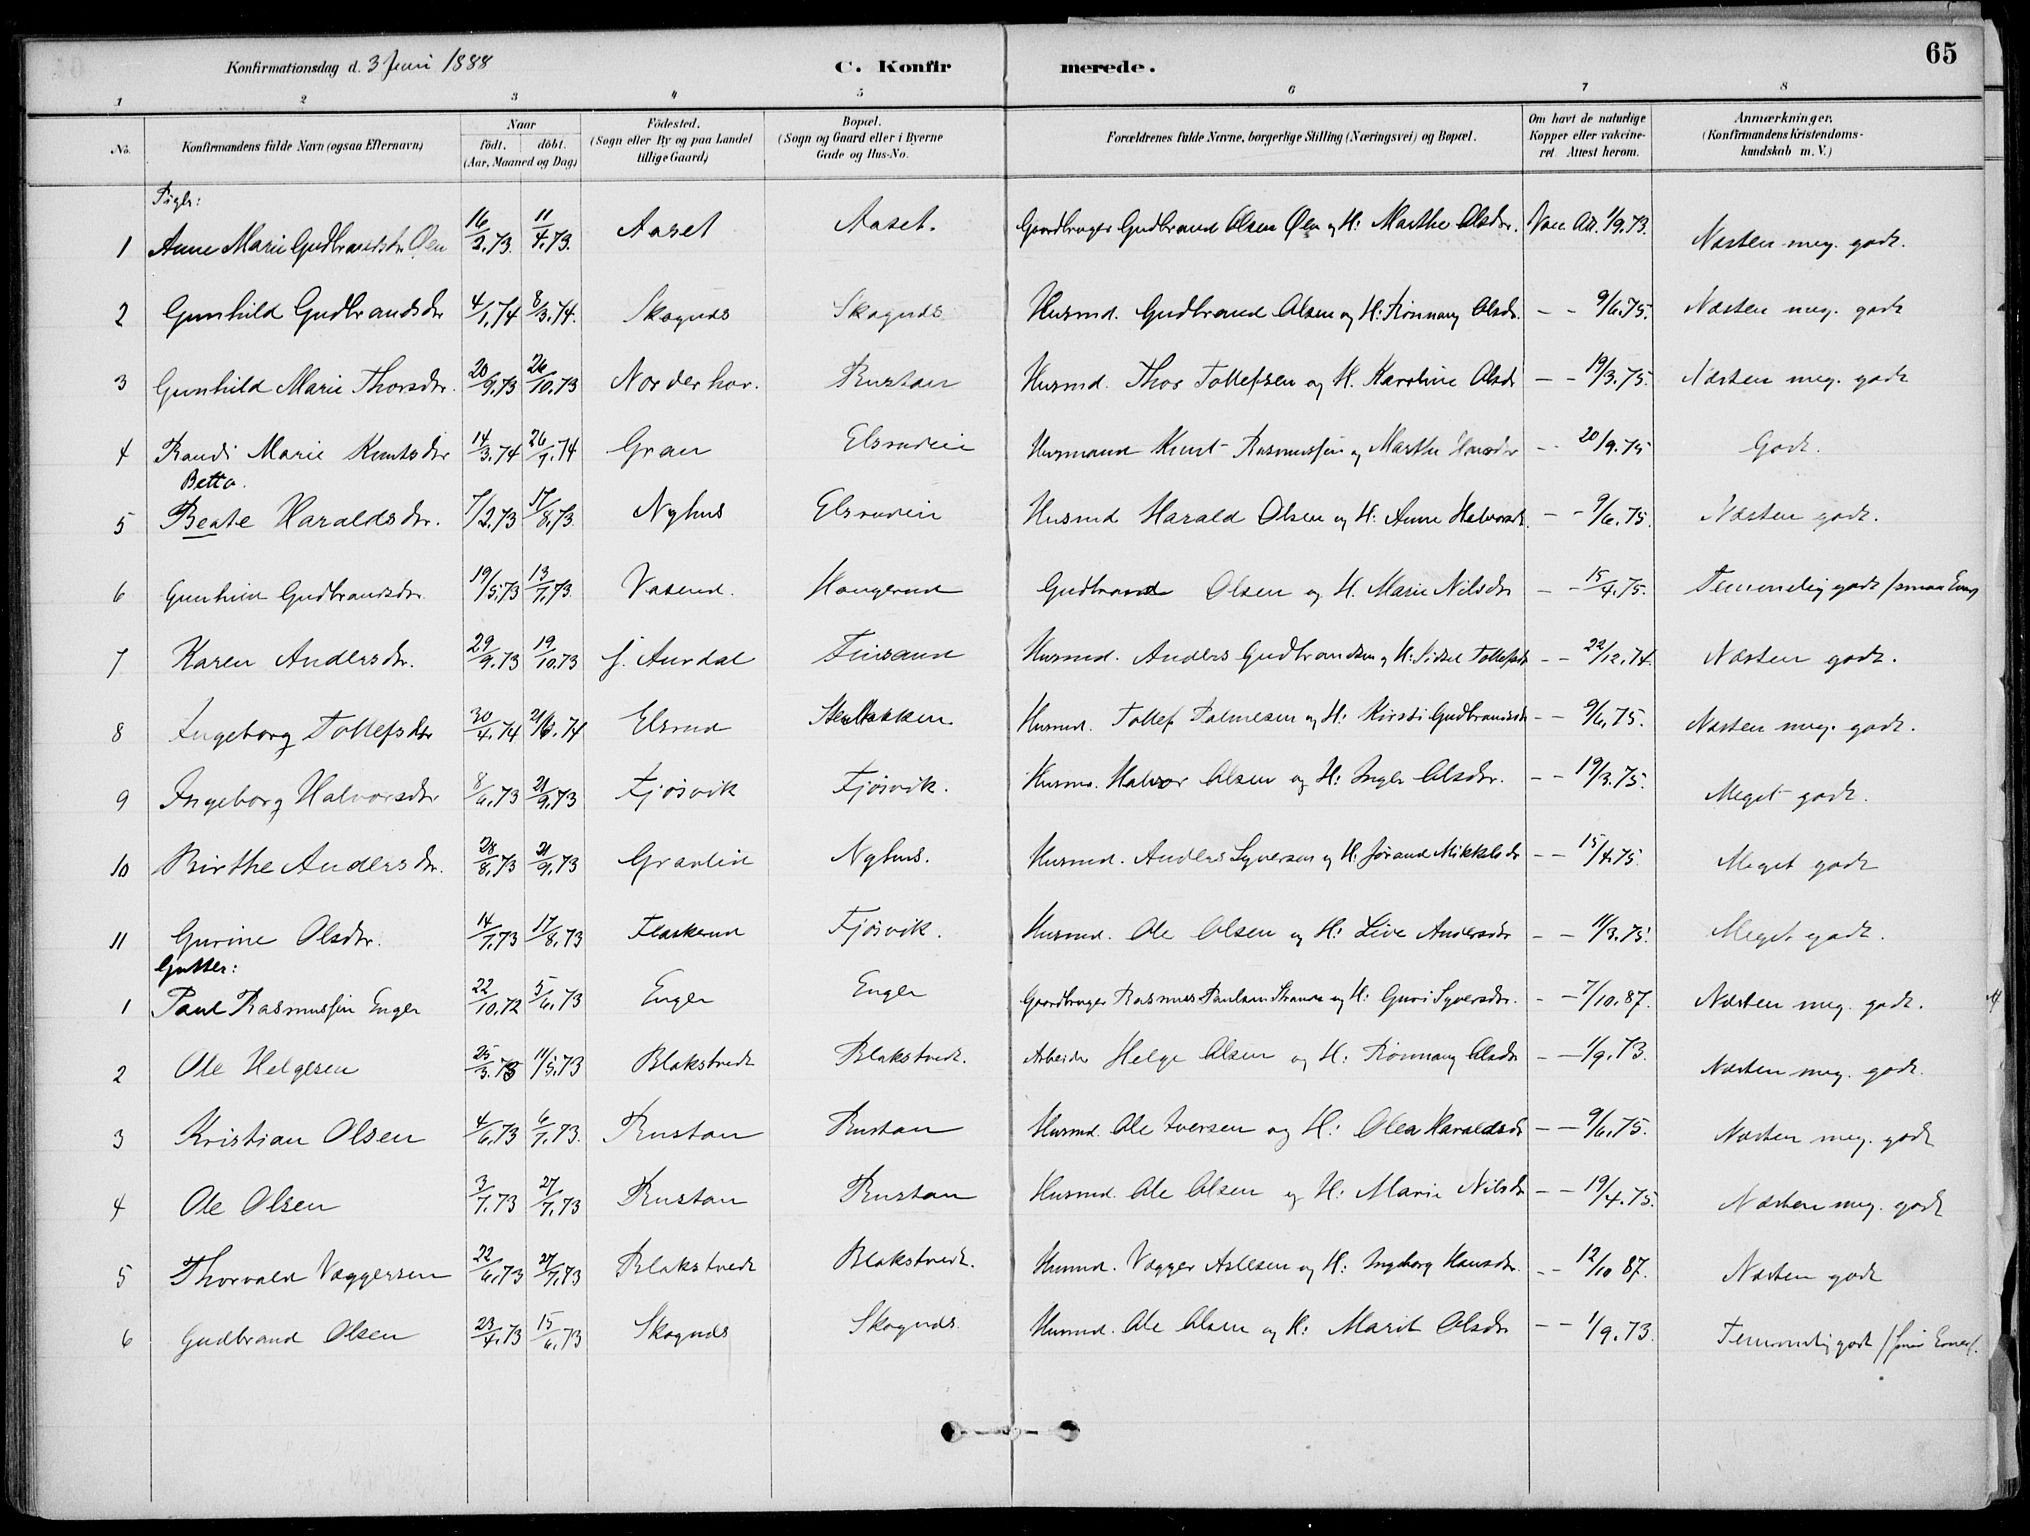 65
Konfirmationsdag d. 3 Juni 1888 C. Konfirmerede.
1 2 3 4 5 6 7 8
No. Konfirmandens fulde Navn (ogsaa Efternavn) Naar födt. döbt. (Aar, Maaned og Dag) Födested. (Sogn eller By og paa Landet tillige Gaard) Bopæl. (Sogn og Gaard eller i Byerne Gade og Hus-No. Forældrenes fulde Navne, borgerlige Stilling (Næringsvei) og Bopæl. Om havt de naturlige Kopper eller vakcineret Attest herom. Anmærkninger. (Konfirmandens Kristendomskundskab m. V.)
Piger:
1 Anne Marie Gudbrandsdr Øen 16/2.73. 11/4.73. Aaset Aaset. Gaardbruger Gudbrand Olsen Øen og H: Marthe Olsdr. Vacc. Att. 1/9.73. Næsten meg. godt.
2 Gunhild Gudbrandsdr 4/1.74 8/3.74. Skognds Skognds Husmd. Gudbrand Olsen og H: Rønnaug Olsdr. - - 9/6.75. Næsten meg. godt
3 Gunhild Marie Thorsdr. 20/9.73 26/10.73 Norderhov. Rustan Husmd. Thor Tollefsen og H. Karoline Olsdr - - 19/3.75. Næsten meg. godt
4 Randi Marie Knutsdr 14/3.74 26/7.74 Gran Elsrudeie Husmand Knut Rasmussen og Marthe Hansdr - - 20/9.75 Godt.
Betta.
5 Beate Haraldsdr. 7/2.73 17/8.73. Nyhus Elsrudeie Husmd Harald Olsen og H: Anne Halvorsdr. - - 9/6.75. Næsten godt.
6 Gunhild Gudbrandsdr. 19/5.73 13/7.73. Vasend. Haugerud Gudbrand Olsen og H. Marie Nilsdr - - 15/4.75. Temmelig godt /smaa Evner
7 Karen Andersdr. 29/9.73 19/10.73 s. Aurdal Finsand Husmd. Anders Gudbrandsen og H: Sidsel Tollefsdr - - 22/12.74. Næsten godt.
8 Ingeborg Tollefsdr 30/4.74 21/6.74 Elsrud Stenbakken. Husmd. Tollef Palmesen og H: Kirsti Gudbrandsdr - - 9/6.75. Næsten meg. godt.
9 Ingeborg Halvorsdr 8/6.73 21/9.73 Fjösvik Fjösvik. Husmd. Halvor Olsen og H: Inger Olsdr. - - 19/3.75. Meget godt.
10 Birthe Andersdr. 28/8.73 21/9.73 Gravlie Nyhus. Husmd. Anders Syversen og H: Jörand Mikkelsdr - - 15/4.75. Meget godt
11 Gurine Olsdr. 14/7.73 17/8.73 Flaskerud Fjösvik. Husmd. Ole Olsen og H: Live Andersdr - - 11/3.75. Meget godt.
Gutter:
1 Paul Rasmussen Enger 22/10.72 5/6.73 Enger Enger Gaardbruger Rasmus Paulsen Strande og H: Guri Syversdr. - - 7/10.87. Næsten meg. godt.
2 Ole Helgesen 25/3.73 11/5.73 Blakstvedt Blakstvedt. Arbeider Helge Olsen og H: Rønnaug Olsdr - - 1/9.73. Næsten meg. godt.
3 Kristian Olsen 4/6.73 6/7.73. Rustan Rustan Husmd. Ole Iversen og H: Olea Haraldsdr - - 9/6.75. Næsten meg. godt
4 Ole Olsen 3/7.73 27/7.73 Rustan Rustan Husmd. Ole Olsen og H: Marie Nilsdr - - 19/4.75. Næsten meg. godt
5 Thorvald Væggersen 22/6.73 27/7.73 Blakstvedt Blakstvedt. Husmd. Vægger Aslesen og H: Ingeborg Hansdr. - - 12/10 87. Næsten godt
6 Gudbrand Olsen 23/4.73 15/6.73 Skognds Skognds Husmd. Ole Olsen og H: Marit Olsdr - - 1/9.73. Temmelig godt